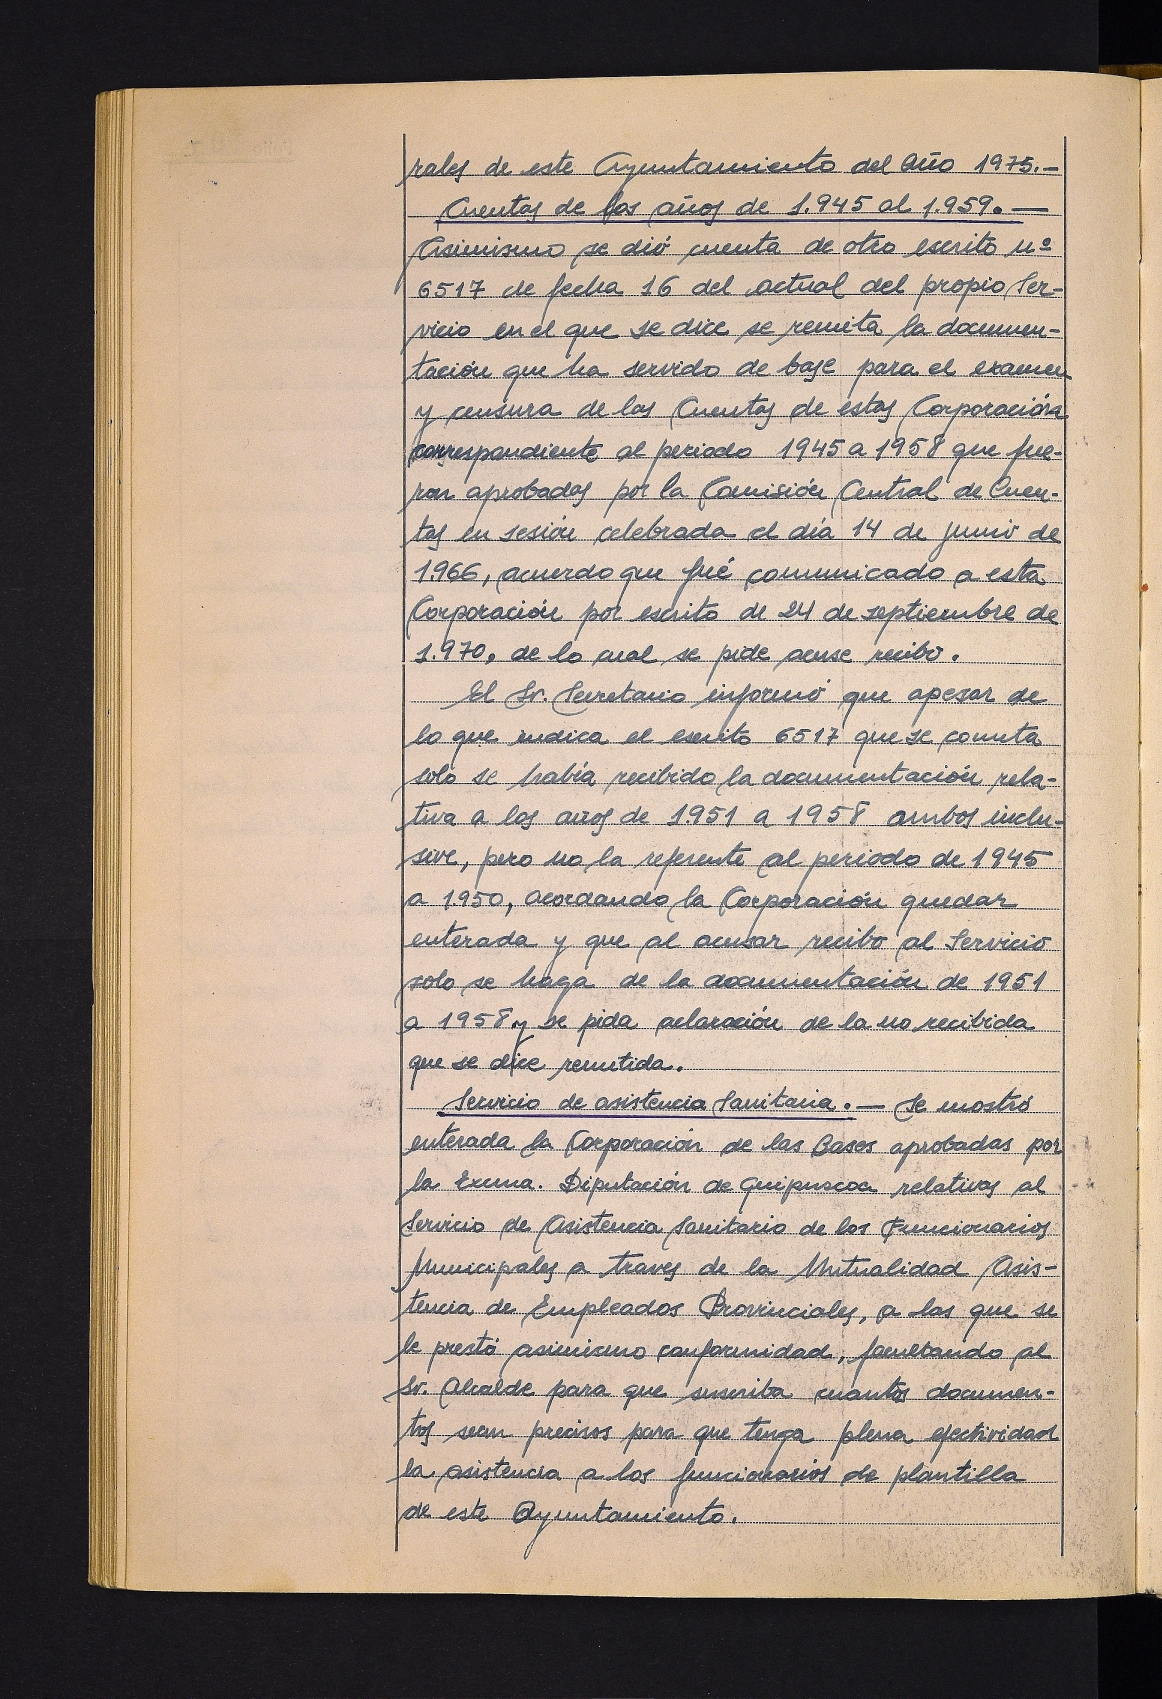 rales de este Ayuntamiento del Año 1975.-
Cuentas de los años de 1.945 al 1.959.—
Asimismo se dió cuenta de otro escrito nº
6517 de fecha 16 del actual del propio Ser-
vicio en el que se dice se remita la documen-
tación que ha servido de base para el examen
y censura de las Cuentas de estas Corporación
correspondiente al periodo 1945 a 1958 que fue-
ron aprobadas por la Comisión Central de Cuen-
tas en sesión celebrada el día 14 de junio de
1.966, acuerdo que fué comunicado a esta
Corporación por escrito de 24 de septiembre de
1.970, de lo cual se pide acuse recibo.
El Sr. Secretario informó que apesar de
lo que indica el escrito 6517 que se comenta
solo se había recibido la documentación rela-
tiva a los años de 1.951 a 1958 ambos inclu-
sive, pero no la referente al periodo de 1945
a 1.950, acordando la Corporación quedar
enterada y que al acusar recibo al Servicio
solo se haga de la documentación de 1951
a 1958 y se pida aclaración de la no recibida
que se dice remitida.
Servicio de asistencia Sanitaria.— Se mostró
enterada la Corporación de las Bases aprobadas por
la Excma. Diputación de Guipuscoa relativas al
Servicio de Asistencia Sanitario de los Funcionarios
Municipales a traves de la Mutualidad Asis-
tencia de Empleados Provinciales, a las que se
le prestó asimismo conformidad, facultando al
Sr. Alcalde para que suscriba cuantos documen-
tos sean precisos para que tenga plena efectividad
la asistencia a los funcionarios de plantilla
de este Ayuntamiento.